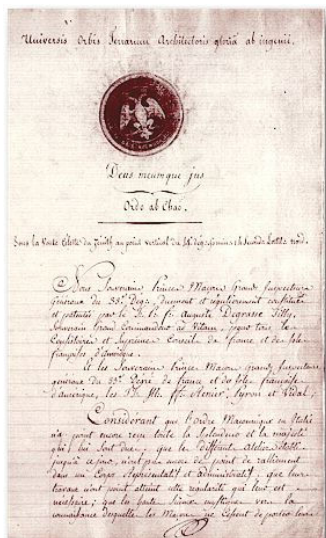 Universis Orbis Terrarum Architectoris gloria ab ingenii.
Deus meumque jus
Ordo ab Chao.
Sous la Voute Céleste du Zénith au point vertical du
Nous Souverains Princes Maçons Grands Inspecteurs
Généraux du 33e Degré, duement et régulièrement constitués
et patentés par le fr. Auguste Degrasse Tilly,
Souverain Grand Commandeur ad Vitam, pour tous les
Consistoires et Suprême Conseil de france et des Isles
françaises d'Amérique.
Et les Souverains Princes Maçons Grands Inspecteurs
généraux du 33e Degré de france et des Isles françaises
d'amérique, les ff. Renier, Pyron et Vidal;
Considérant que l'ordre Maçonnique en Italie
n'a point encore reçu toute la Splendeur et la majesté
qui lui sont dus; que les Différents Ateliers
jusqu'à ce jour, n'ont pas aucun de point de ralliement
dans un Corps représentatif et administratif; que leurs
travaux n'ont point atteint cette régularité qui leur est
nécessaire; que les hautes Sciences mystiques vers la
connaissance desquelles les Maçons ne Cessent de porter leurs